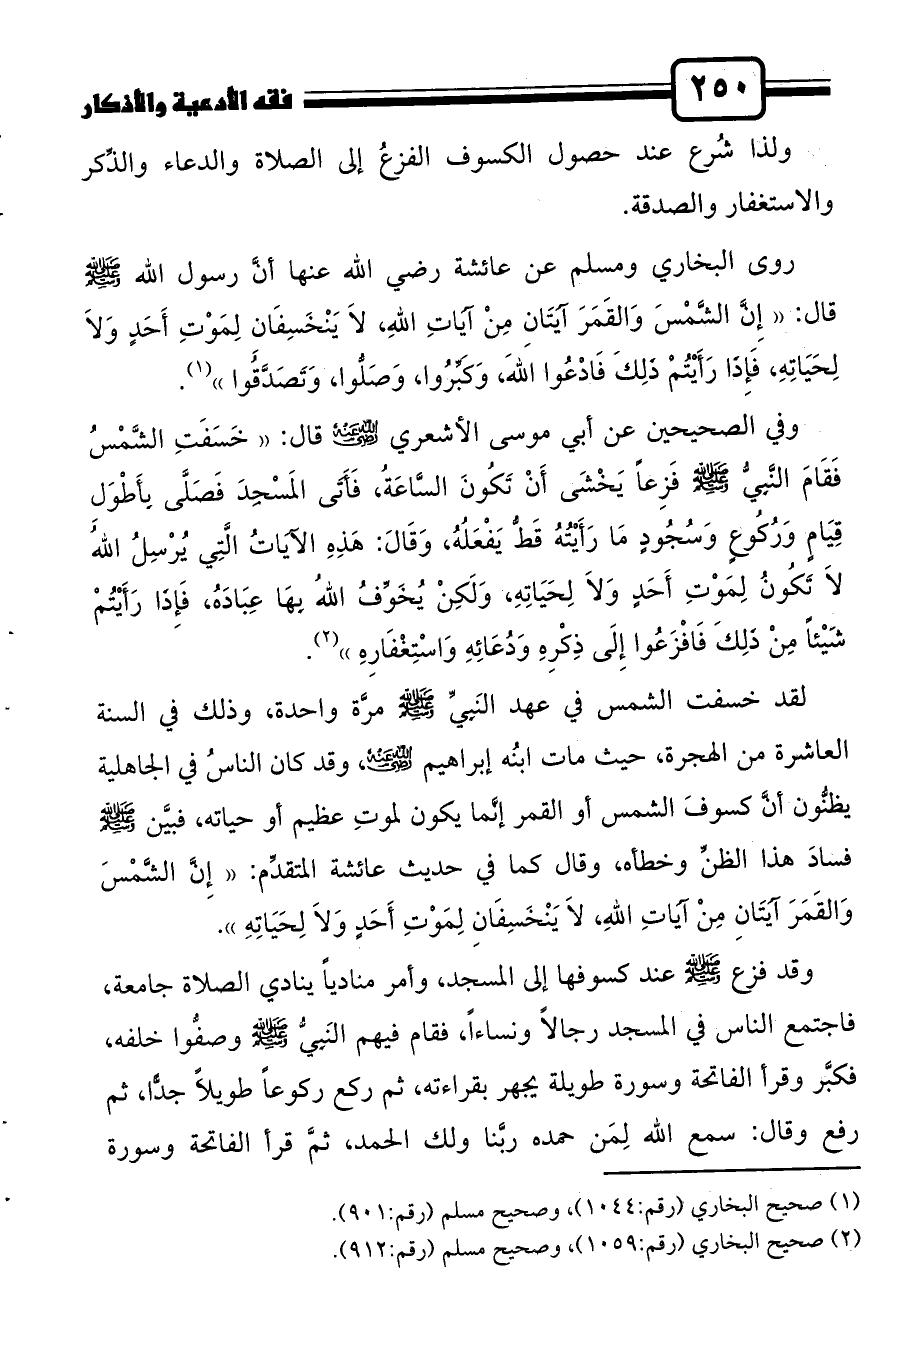 ٢٥٠ فقه الأدعية والأذكار
ولذا شُرع عند حصول الكسوف الفزعُ إلى الصلاة والدعاء والذِّكر
والاستغفار والصدقة.
روى البخاري ومسلم عن عائشة رضي الله عنها أنَّ رسول الله ﷺ
قال: « إِنَّ الشَّمْسَ وَالقَمَرَ آيَتَانِ مِنْ آيَاتِ اللهِ، لاَ يَنْخَسِفَانِ لِمَوْتِ أَحَدٍ وَلاَ
لِحَيَاتِهِ، فَإِذَا رَأَيْتُمْ ذَلِكَ فَادْعُوا اللهَ، وَكَبِّرُوا، وَصَلُّوا، وَتَصَدَّقُوا »(١).
وفي الصحيحين عن أبي موسى الأشعري رضي الله عنه قال: « خَسَفَتِ الشَّمْسُ
فَقَامَ النَّبِيُّ ﷺ فَزِعاً يَخْشَى أَنْ تَكُونَ السَّاعَةُ، فَأَتَى المَسْجِدَ فَصَلَّى بِأَطْوَلِ
قِيَامٍ وَرُكُوعٍ وَسُجُودٍ مَا رَأَيْتُهُ قَطُّ يَفْعَلُهُ، وَقَالَ: هَذِهِ الآيَاتُ الَّتِي يُرْسِلُ اللهُ
لاَ تَكُونُ لِمَوْتِ أَحَدٍ وَلاَ لِحَيَاتِهِ، وَلَكِنْ يُخَوِّفُ اللهُ بِهَا عِبَادَهُ، فَإِذَا رَأَيْتُمْ
شَيْئاً مِنْ ذَلِكَ فَافْزَعُوا إِلَى ذِكْرِهِ وَدُعَائِهِ وَاسْتِغْفَارِهِ »(٢).
لقد خسفت الشمس في عهد النَبيِّ ﷺ مرَّة واحدة، وذلك في السنة
العاشرة من الهجرة، حيث مات ابنُه إبراهيم رضي الله عنه، وقد كان الناسُ في الجاهلية
يظنُّون أنَّ كسوفَ الشمس أو القمر إنَّما يكون لموتِ عظيم أو حياته، فبيَّن ﷺ
فسادَ هذا الظنِّ وخطأه، وقال كما في حديث عائشة المتقدِّم: « إِنَّ الشَّمْسَ
وَالقَمَرَ آيَتَانِ مِنْ آيَاتِ اللهِ، لاَ يَنْخَسِفَانِ لِمَوْتِ أَحَدٍ وَلاَ لِحَيَاتِهِ ».
وقد فزع ﷺ عند كسوفها إلى المسجد، وأمر منادياً ينادي الصلاة جامعة،
فاجتمع الناس في المسجد رجالاً ونساءاً، فقام فيهم النَبيُّ ﷺ وصفُّوا خلفه،
فكبَّر وقرأ الفاتحة وسورة طويلة يجهر بقراءته، ثم ركع ركوعاً طويلاً جدًّا، ثم
رفع وقال: سمع الله لِمَن حمده ربَّنا ولك الحمد، ثمَّ قرأ الفاتحة وسورة
(١) صحيح البخاري (رقم:١٠٤٤)، وصحيح مسلم (رقم:٩٠١).
(٢) صحيح البخاري (رقم:١٠٥٩)، وصحيح مسلم (رقم:٩١٢).